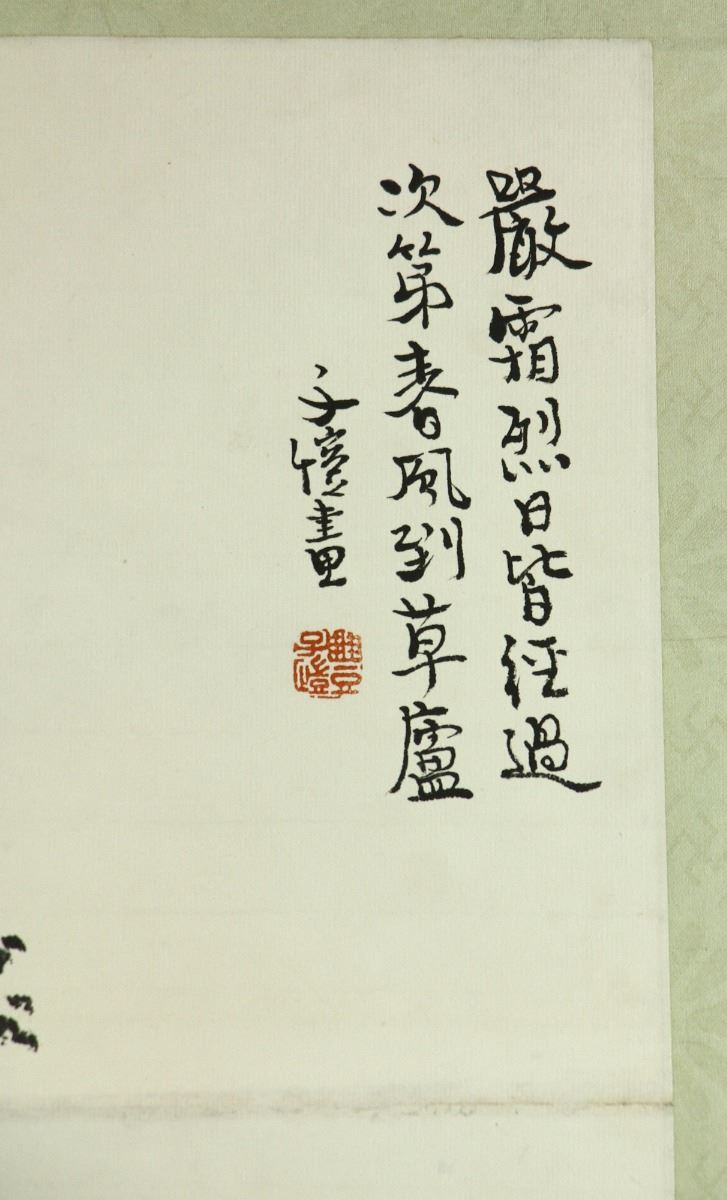 嚴霜烈日皆經過
次第春風到草廬
子愷畫
豐子愷